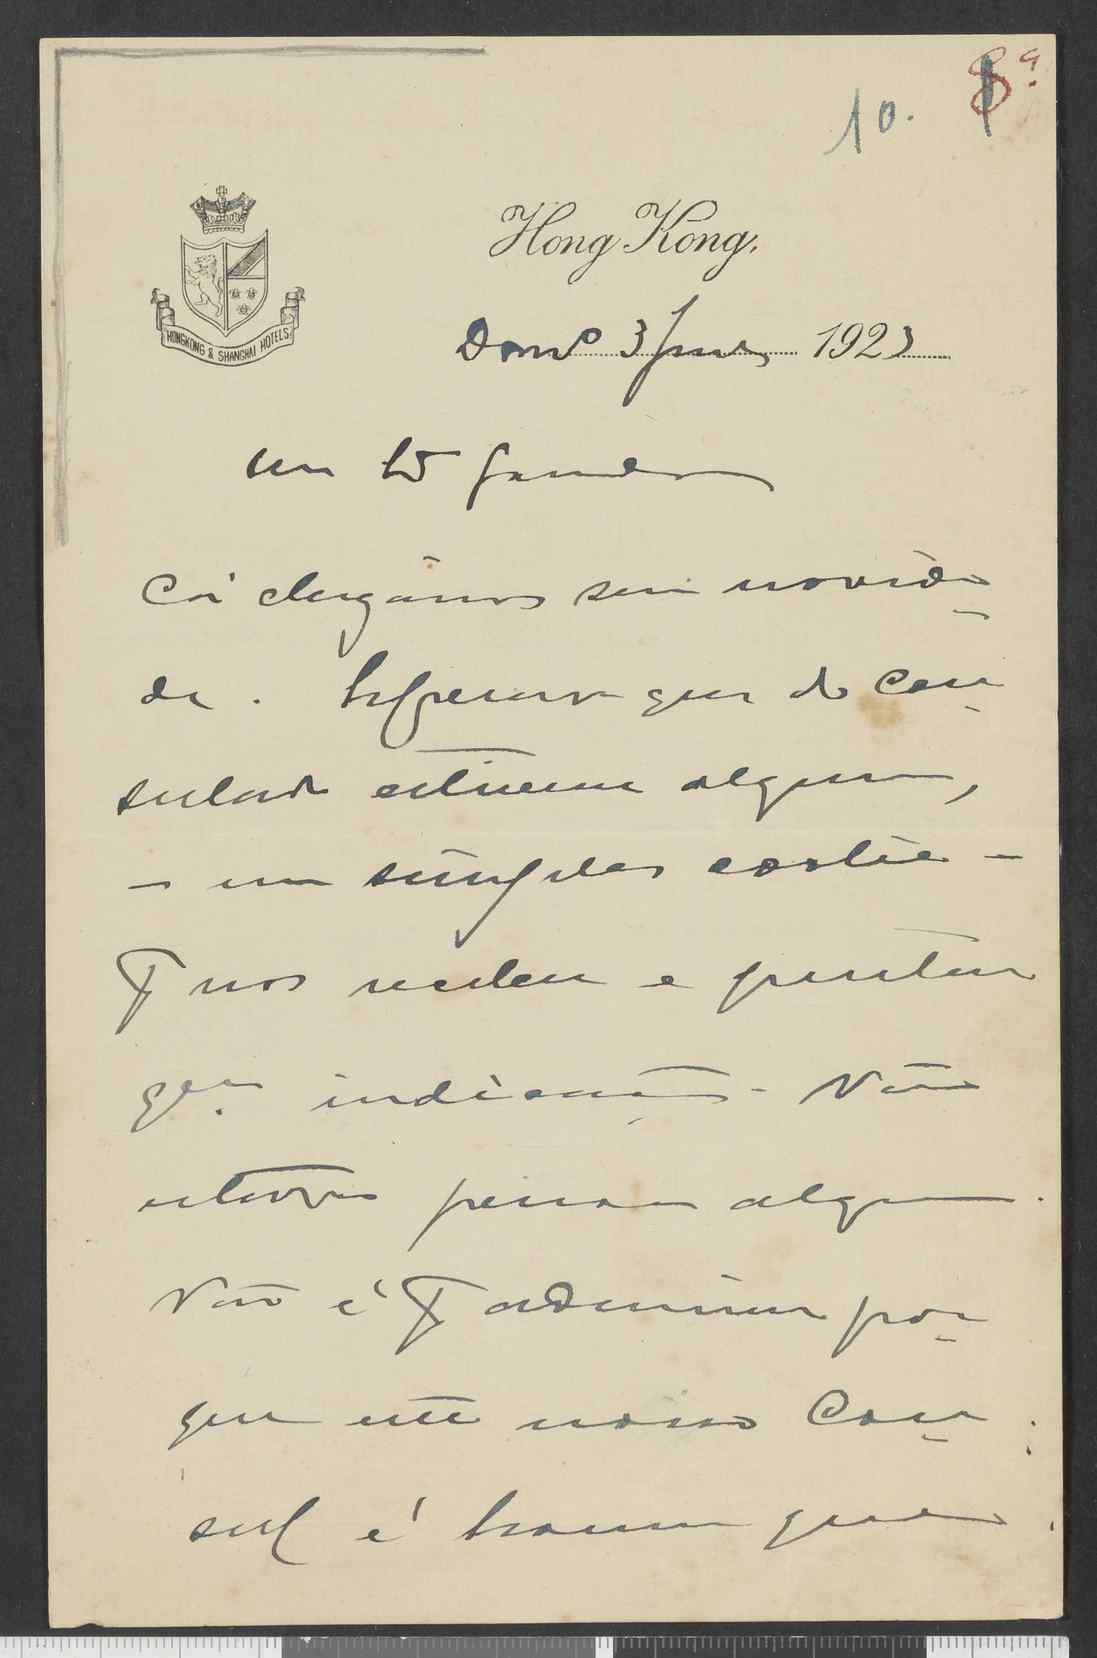 10. 8ª
Hong Kong,
HONGKONG & SHANGHAI HOTELS.
Domº 3 Junho 1923
Meu
Cá chegámos sem novida-
de. Esperava que do Con-
sulado estivesse alguem,
– um simples
q nos recebesse e prestasse
qq. indicação. Não
estava pessoa alguma.
Não é q admirar por-
que este nosso Con-
sul é homem que